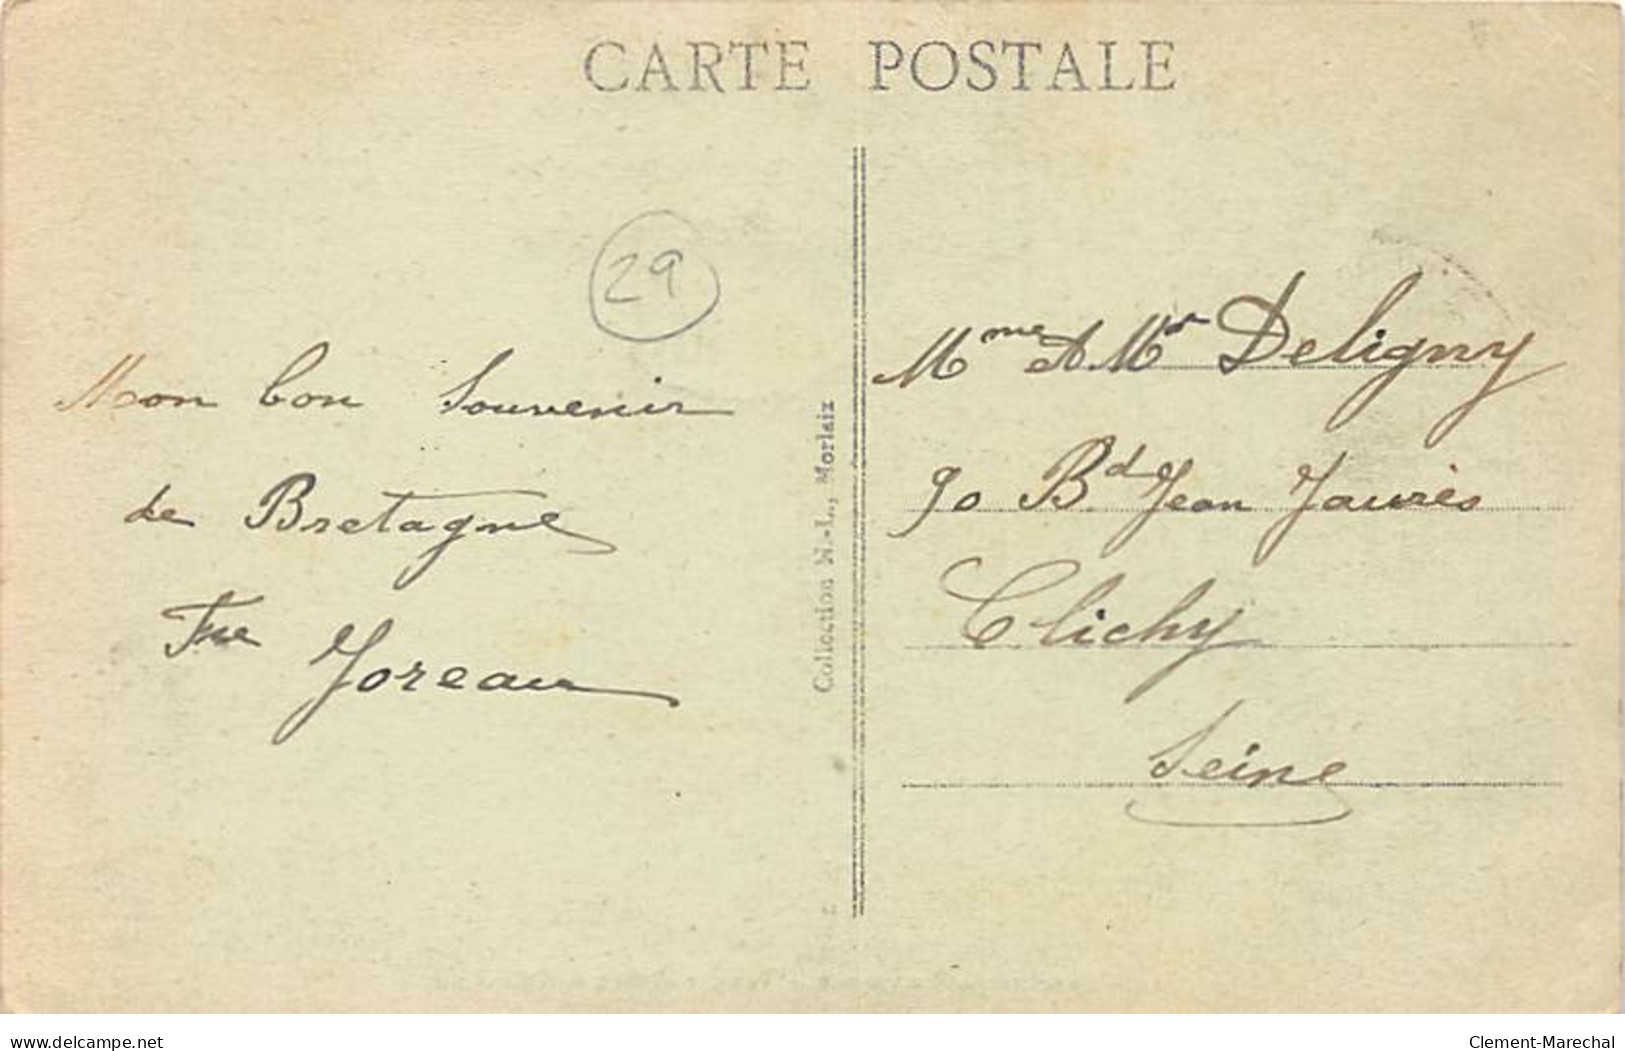 CARTE POSTALE
29
Mon bon Souvenir
de Bretagne
Joreau
Collection N.-L., Morlaix
Mme & Mr Deligny
90 Bd Jean Jaurès
Clichy
Seine
my-collection.delcampe.net
Clement-Marechal